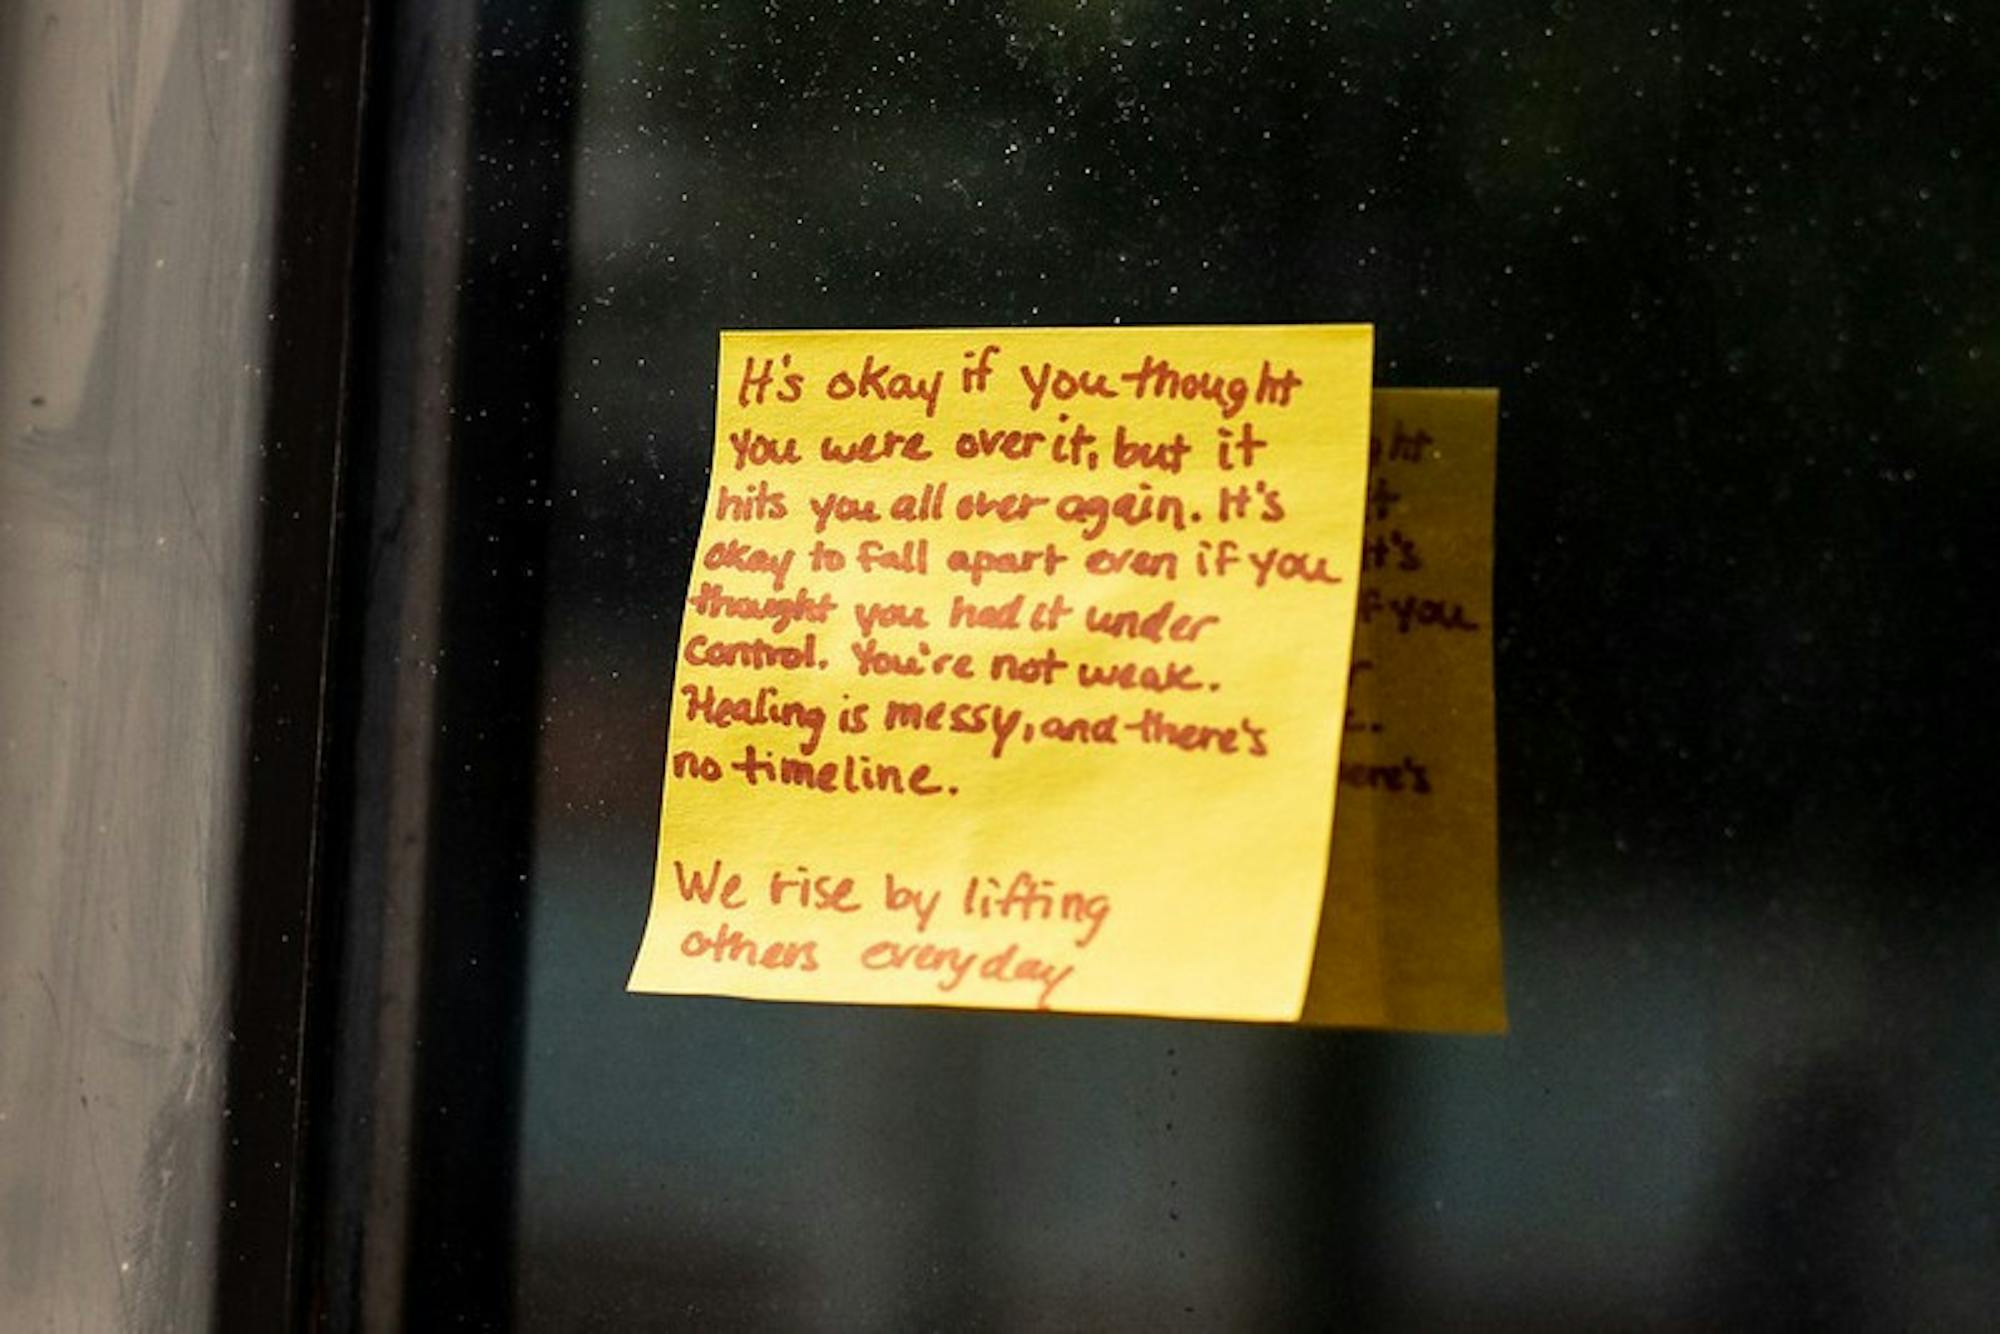 It's okay if you thought
you were over it, but it
hits you all over again. It's
okay to fall apart even if you
thought you had it under
control. You're not weak.
Healing is messy, and there's
no timeline.
We rise by lifting
others everyday
ght
t
t's
f you
r
.
ere's